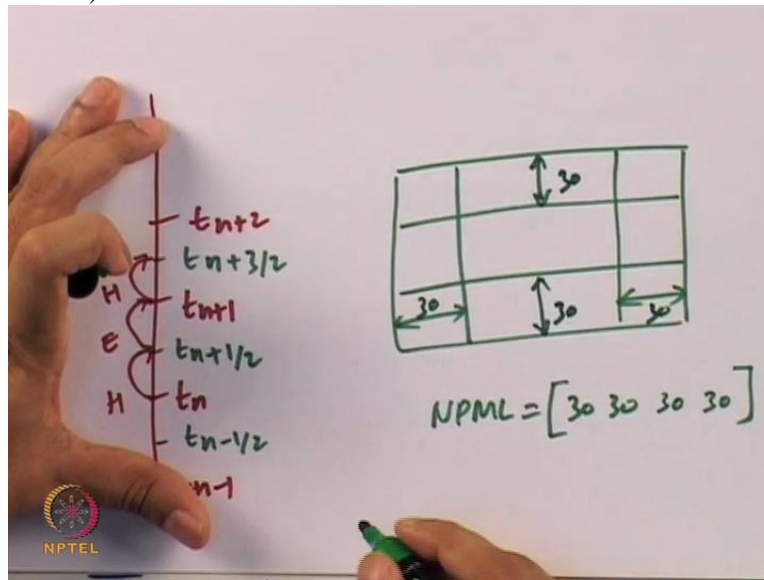 tn+2
tn+3/2
H
tn+1
E
tn+1/2
H
tn
tn-1/2
n-1
30
30
30
30
NPML = [30 30 30 30]
NPTEL